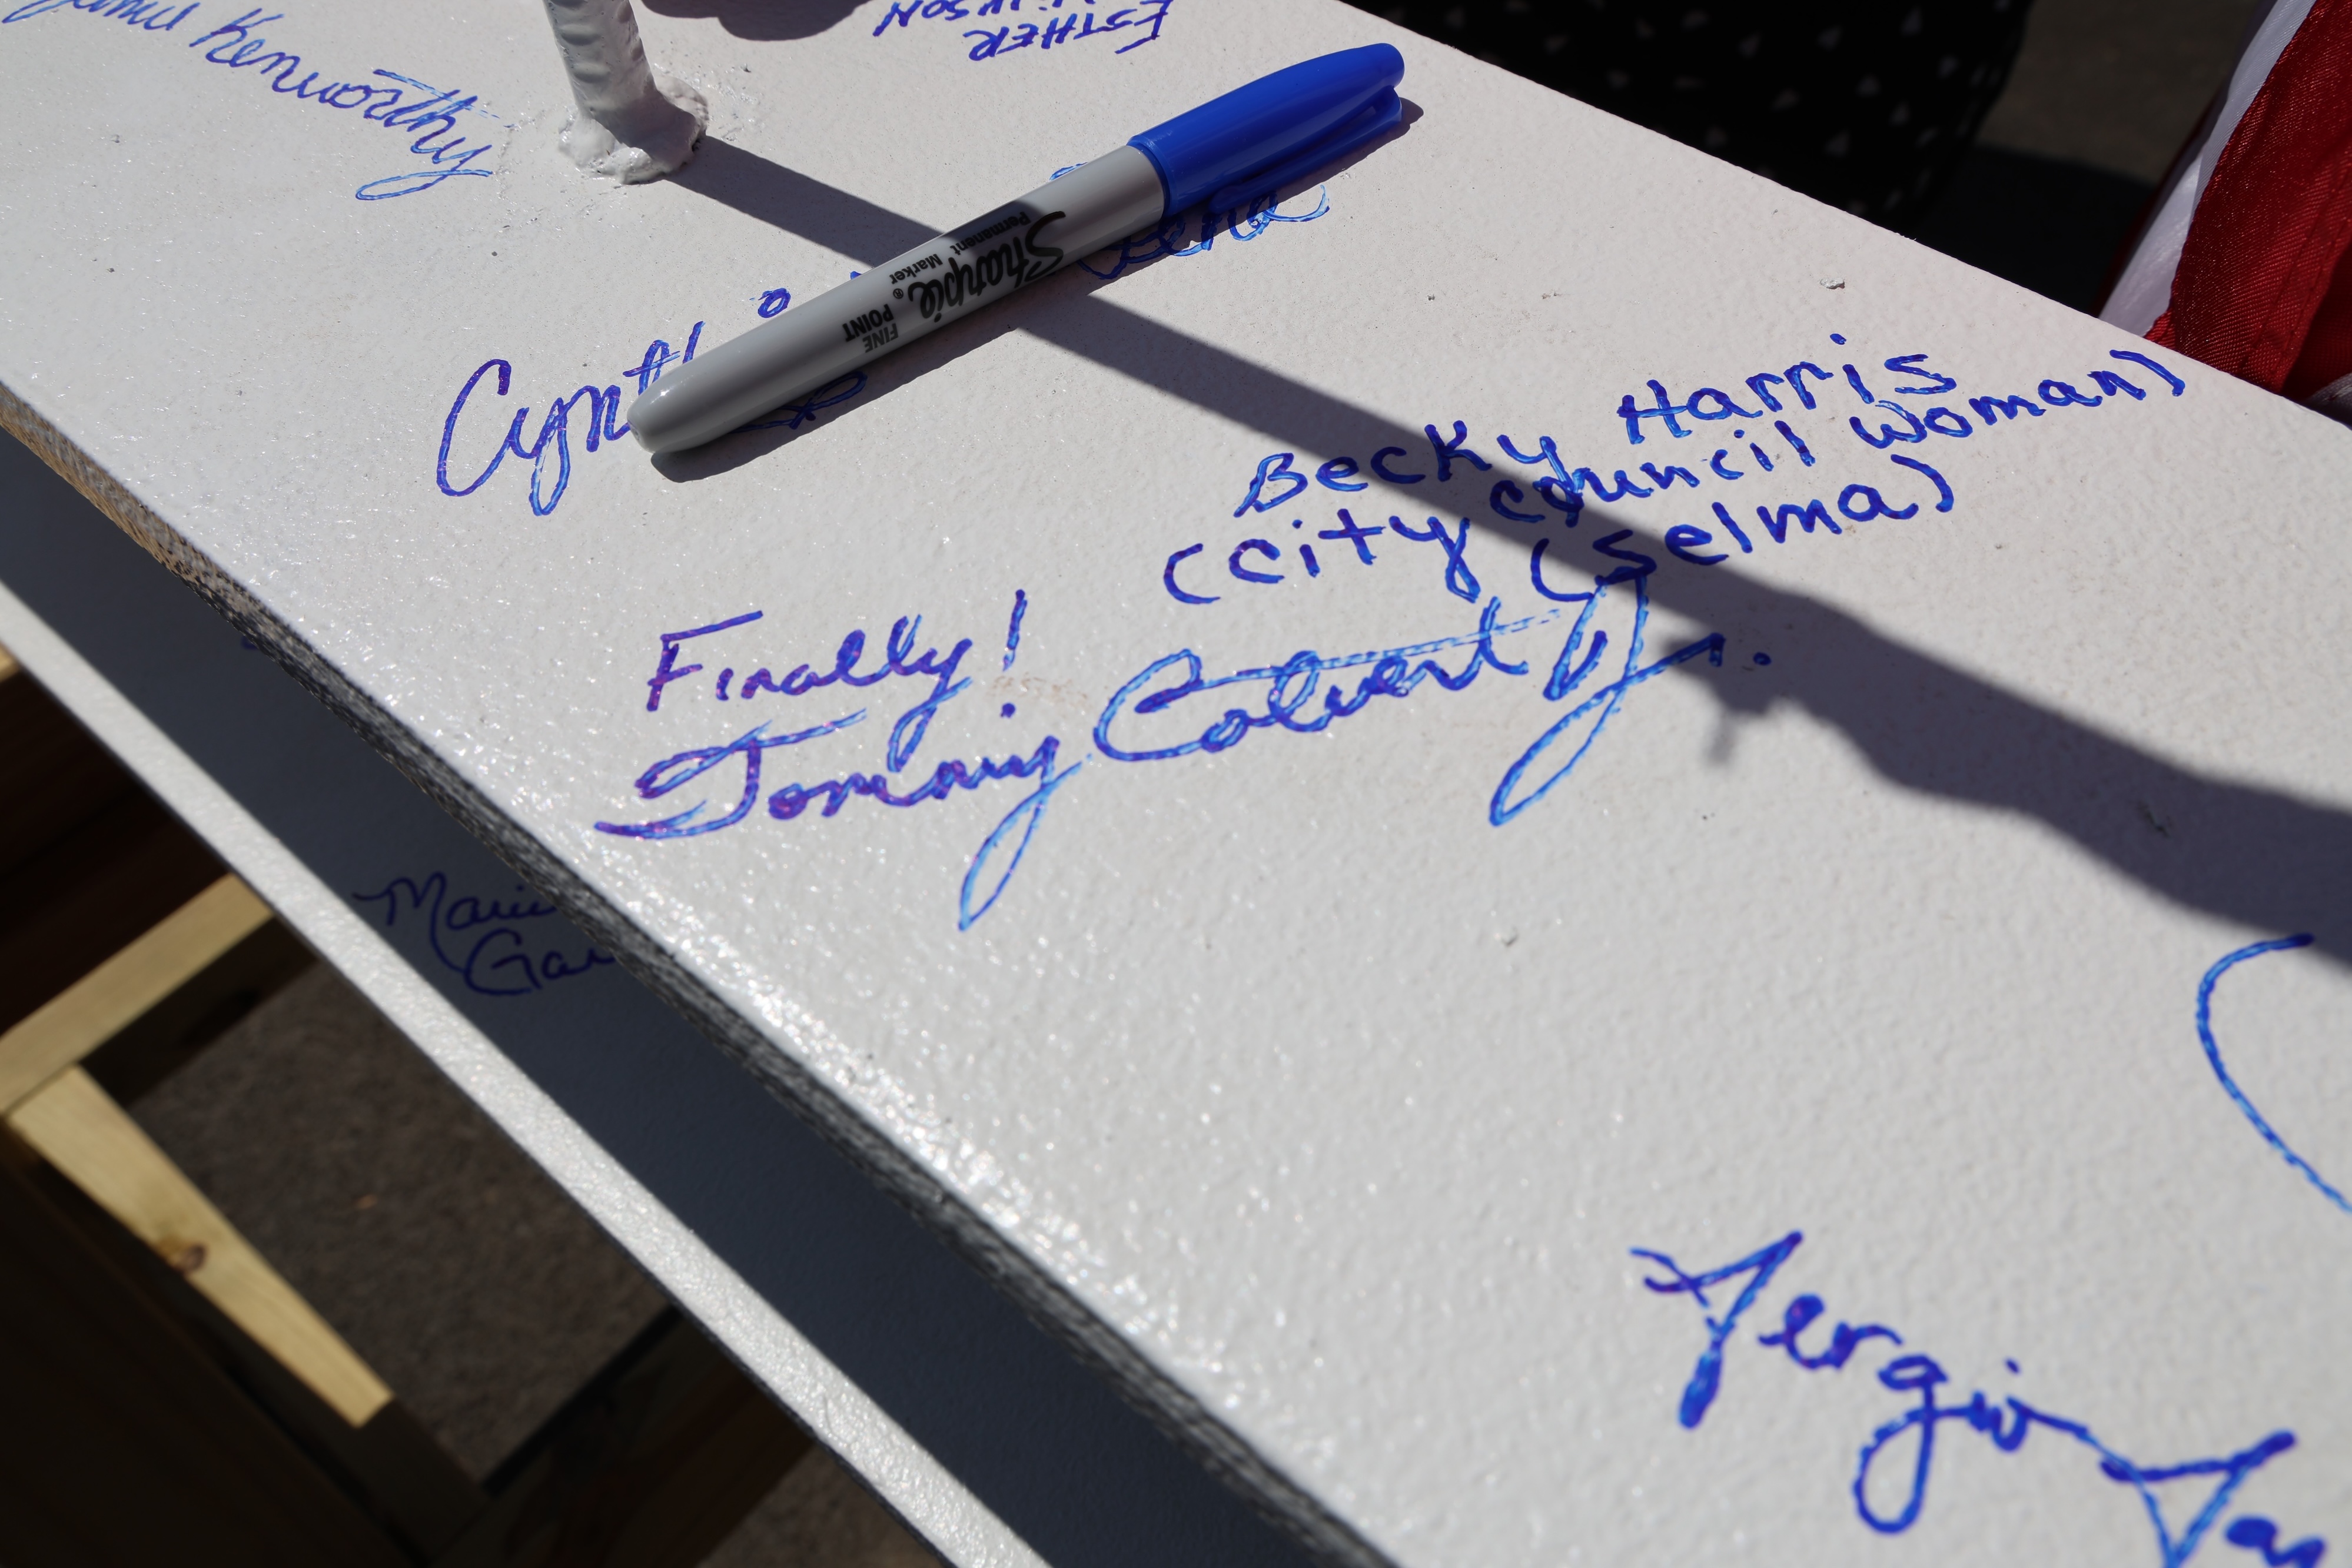 Kenworthy
ESTHER
Sharpie
Permanent Marker
FINE
POINT
Becky Harris
(City council woman)
(Selma)
Finally!
Tommy Calvert Jr.
Sergio